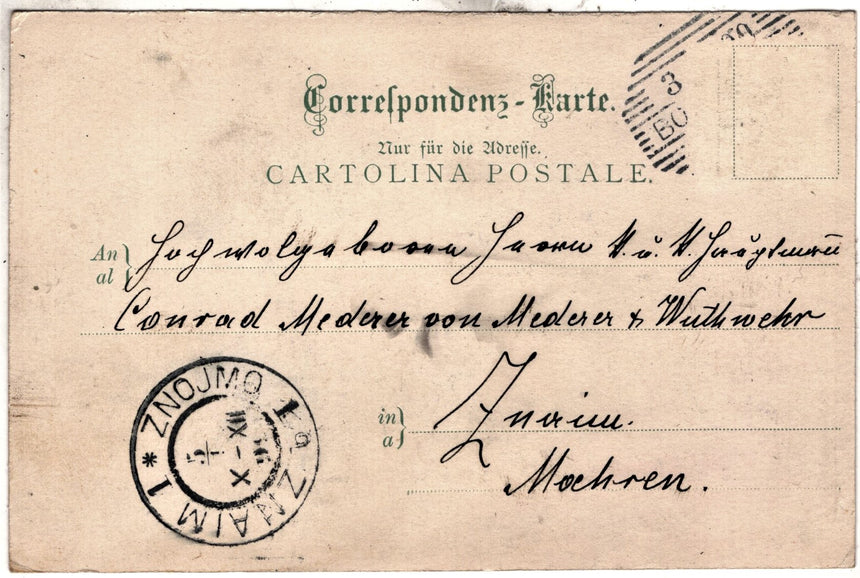 3
BO
Correspondenz-Karte.
Nur für die Adresse.
CARTOLINA POSTALE.
An
al
Hochwolgeboren Herrn K. u. K. Hauptmann
Conrad Mederer von Mederer & Wuthwehr
in
a
Znaim.
Maehren.
ZNOJMO 1 * ZNAIM 1
5
X-XII